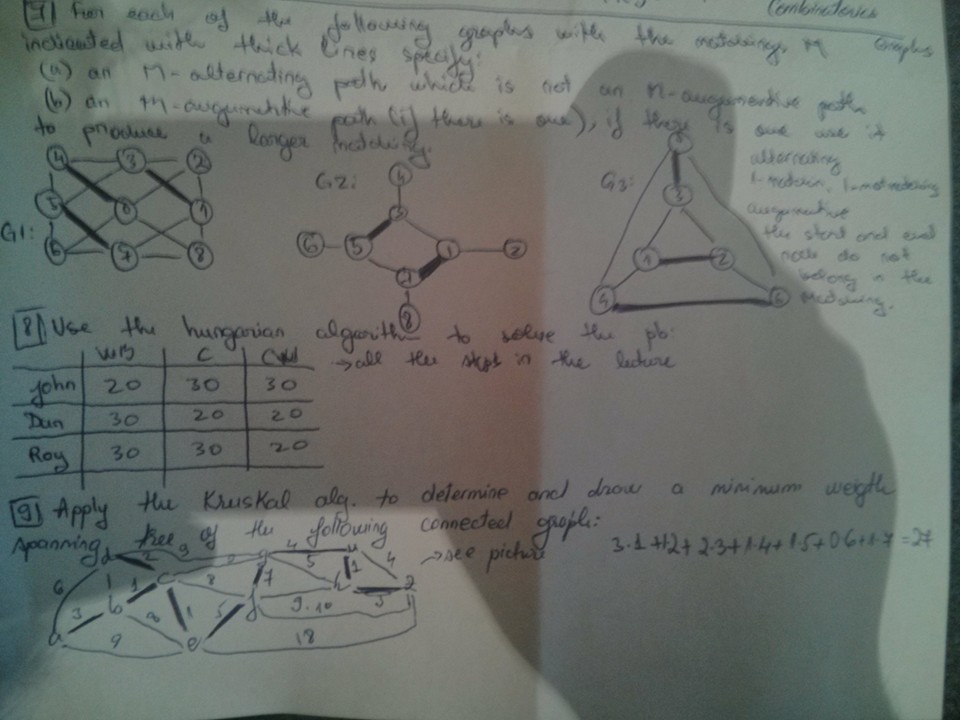 Combinatorics
[7] For each of the following graphs with the matching M Graphs
indicated with thick lines specify:
(a) an M-alternating path which is not an M-augumentive path
(b) an M-augumentive path (if there is one), if there is one use it
to produce a larger matching.
alternating
augumentive
the start and end
node do not
belong in the
matching.
G1:
4 3 2
5 6 1
6 7 8
G2:
4
3
6 5 1 2
8
G3:
3
1 2
4 6
[8] Use the hungarian algorithm to solve the pb:
→ all the steps in the lecture
WB C
John 20 30 30
Dan 30 20 20
Roy 30 30 20
[9] Apply the Kruskal alg. to determine and draw a minimum weigth
spanning tree of the following connected graph:
→ see picture
3·1+1·2+2·3+1·4+1·5+0·6+1·7=27
d 2 9 g 4 u 4
6 1 c 8 7 5 1 h
b 3 5 f 9 10
a 9 e 18